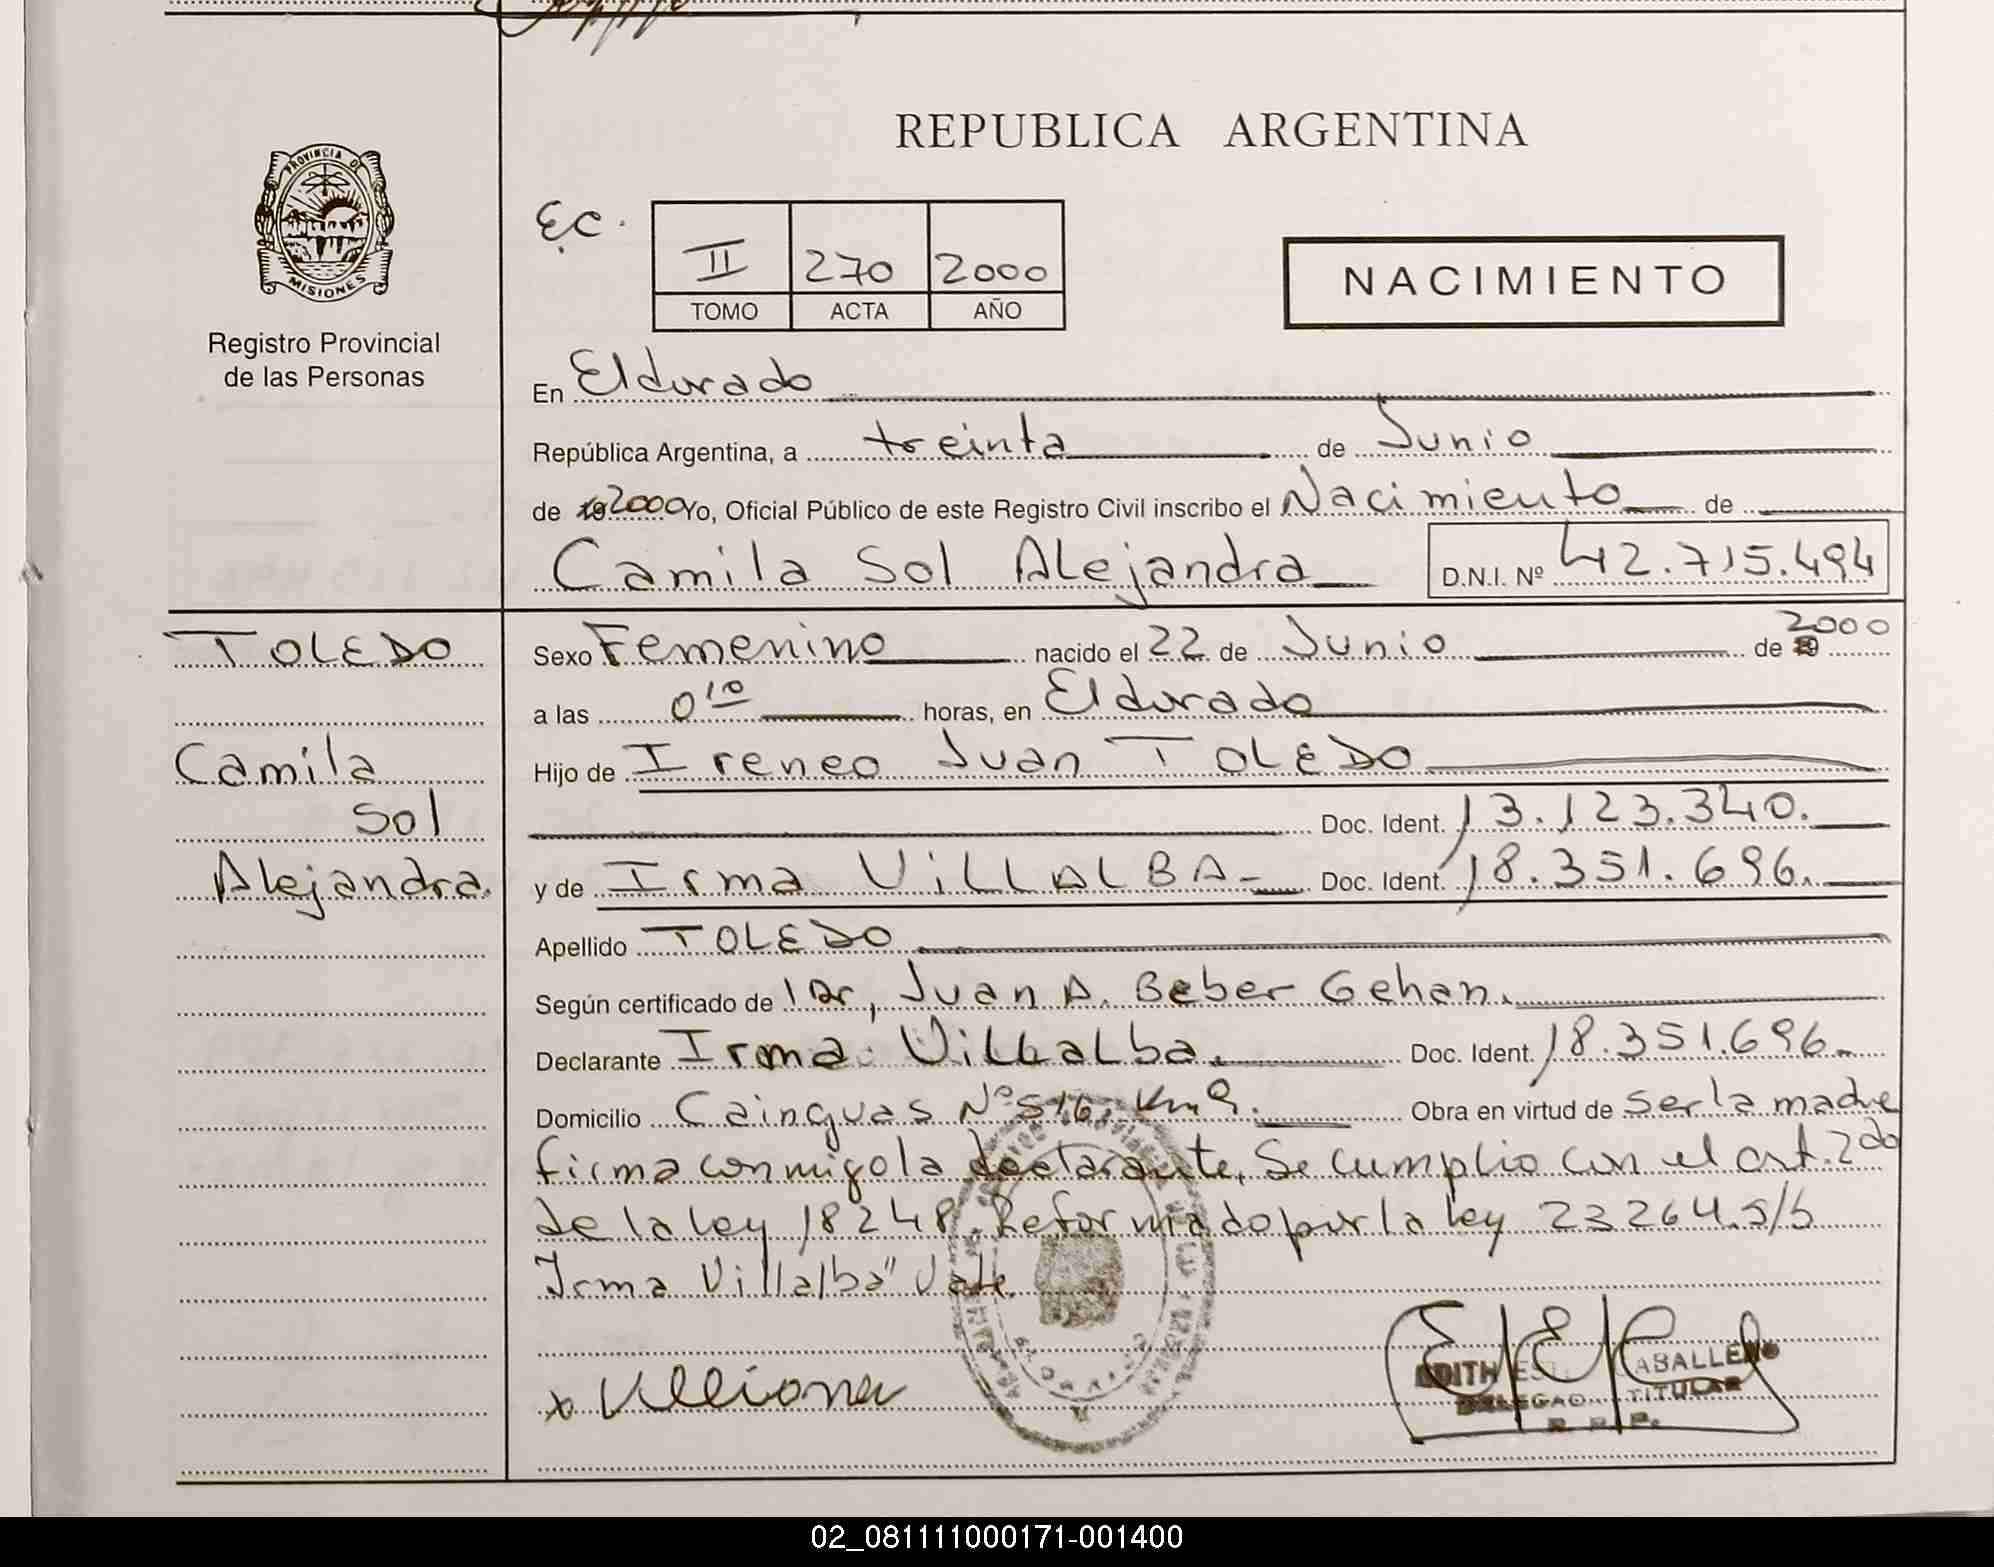 REPUBLICA ARGENTINA
PROVINCIA DE
MISIONES
Registro Provincial
de las Personas
E.C.
II 270 2000
TOMO ACTA AÑO
NACIMIENTO
En Eldorado
República Argentina, a treinta de Junio
de 19 2000 Yo, Oficial Público de este Registro Civil inscribo el Nacimiento de
Camila Sol Alejandra D.N.I. Nº 42.715.494
TOLEDO
Camila
Sol
Alejandra
Sexo Femenino nacido el 22 de Junio de 2000
a las 0 10 horas, en Eldorado
Hijo de Ireneo Juan TOLEDO
Doc. Ident. 13.123.340.
y de Irma VILLALBA- Doc. Ident. 18.351.696.
Apellido TOLEDO
Según certificado de Dr, Juan A. Beber Gehan.
Declarante Irma Villalba. Doc. Ident. 18.351.696.
Domicilio Cainguas Nº 516. Km 9. Obra en virtud de ser la madre
firma conmigo la declarante. Se cumplio con el art. 2do
de la ley 18248 Reformado por la ley 23264. s/b
Irma Villalba" Vale.
x
EDITH CABALLERO
TITULAR
R. P. P.
02_081111000171-001400